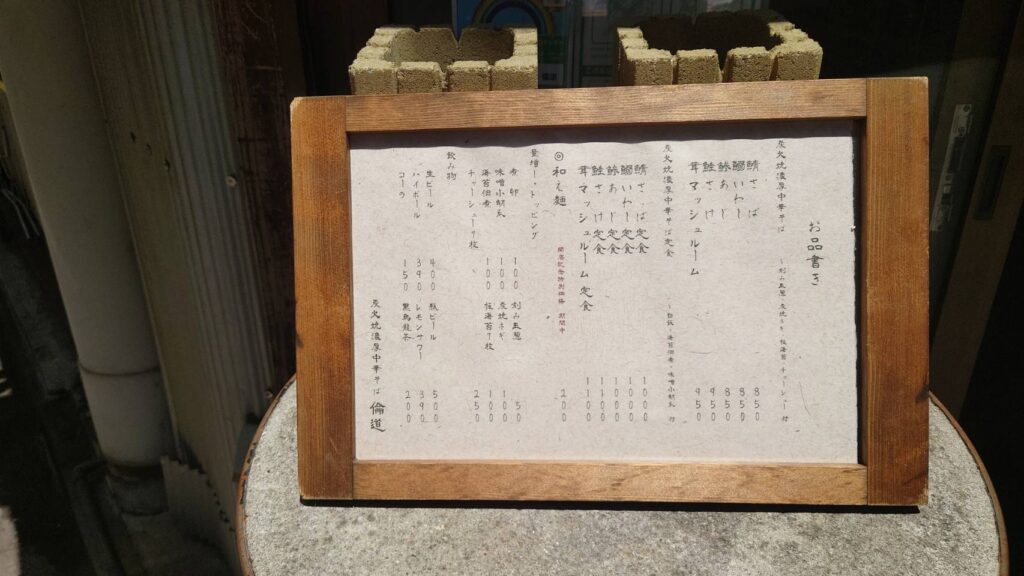 お品書き
炭火焼濃厚中華そば ~刻み玉葱 炭焼ネギ 板海苔 チャーシュー 付
鯖さば 850
鰯いわし 850
鯵あじ 850
鮭さけ 950
茸マッシュルーム 950
炭火焼濃厚中華そば定食 海苔佃煮・味噌小 付
鯖さば定食 1000
鰯いわし定食 1000
鯵あじ定食 1000
鮭さけ定食 1100
茸マッシュルーム定食 1100
◎和え麺 開店記念特別価格 期間中 200
量増し・トッピング
煮卵 100 刻み玉葱 50
味噌小 100 炭焼ネギ 100
海苔佃煮 100 板海苔7枚 100
チャーシュー7枚 250
飲み物
生ビール 400 瓶ビール 500
ハイボール 390 レモンサワー 390
コーラ 150 黒烏龍茶 200
炭火焼濃厚中華そば 倫道